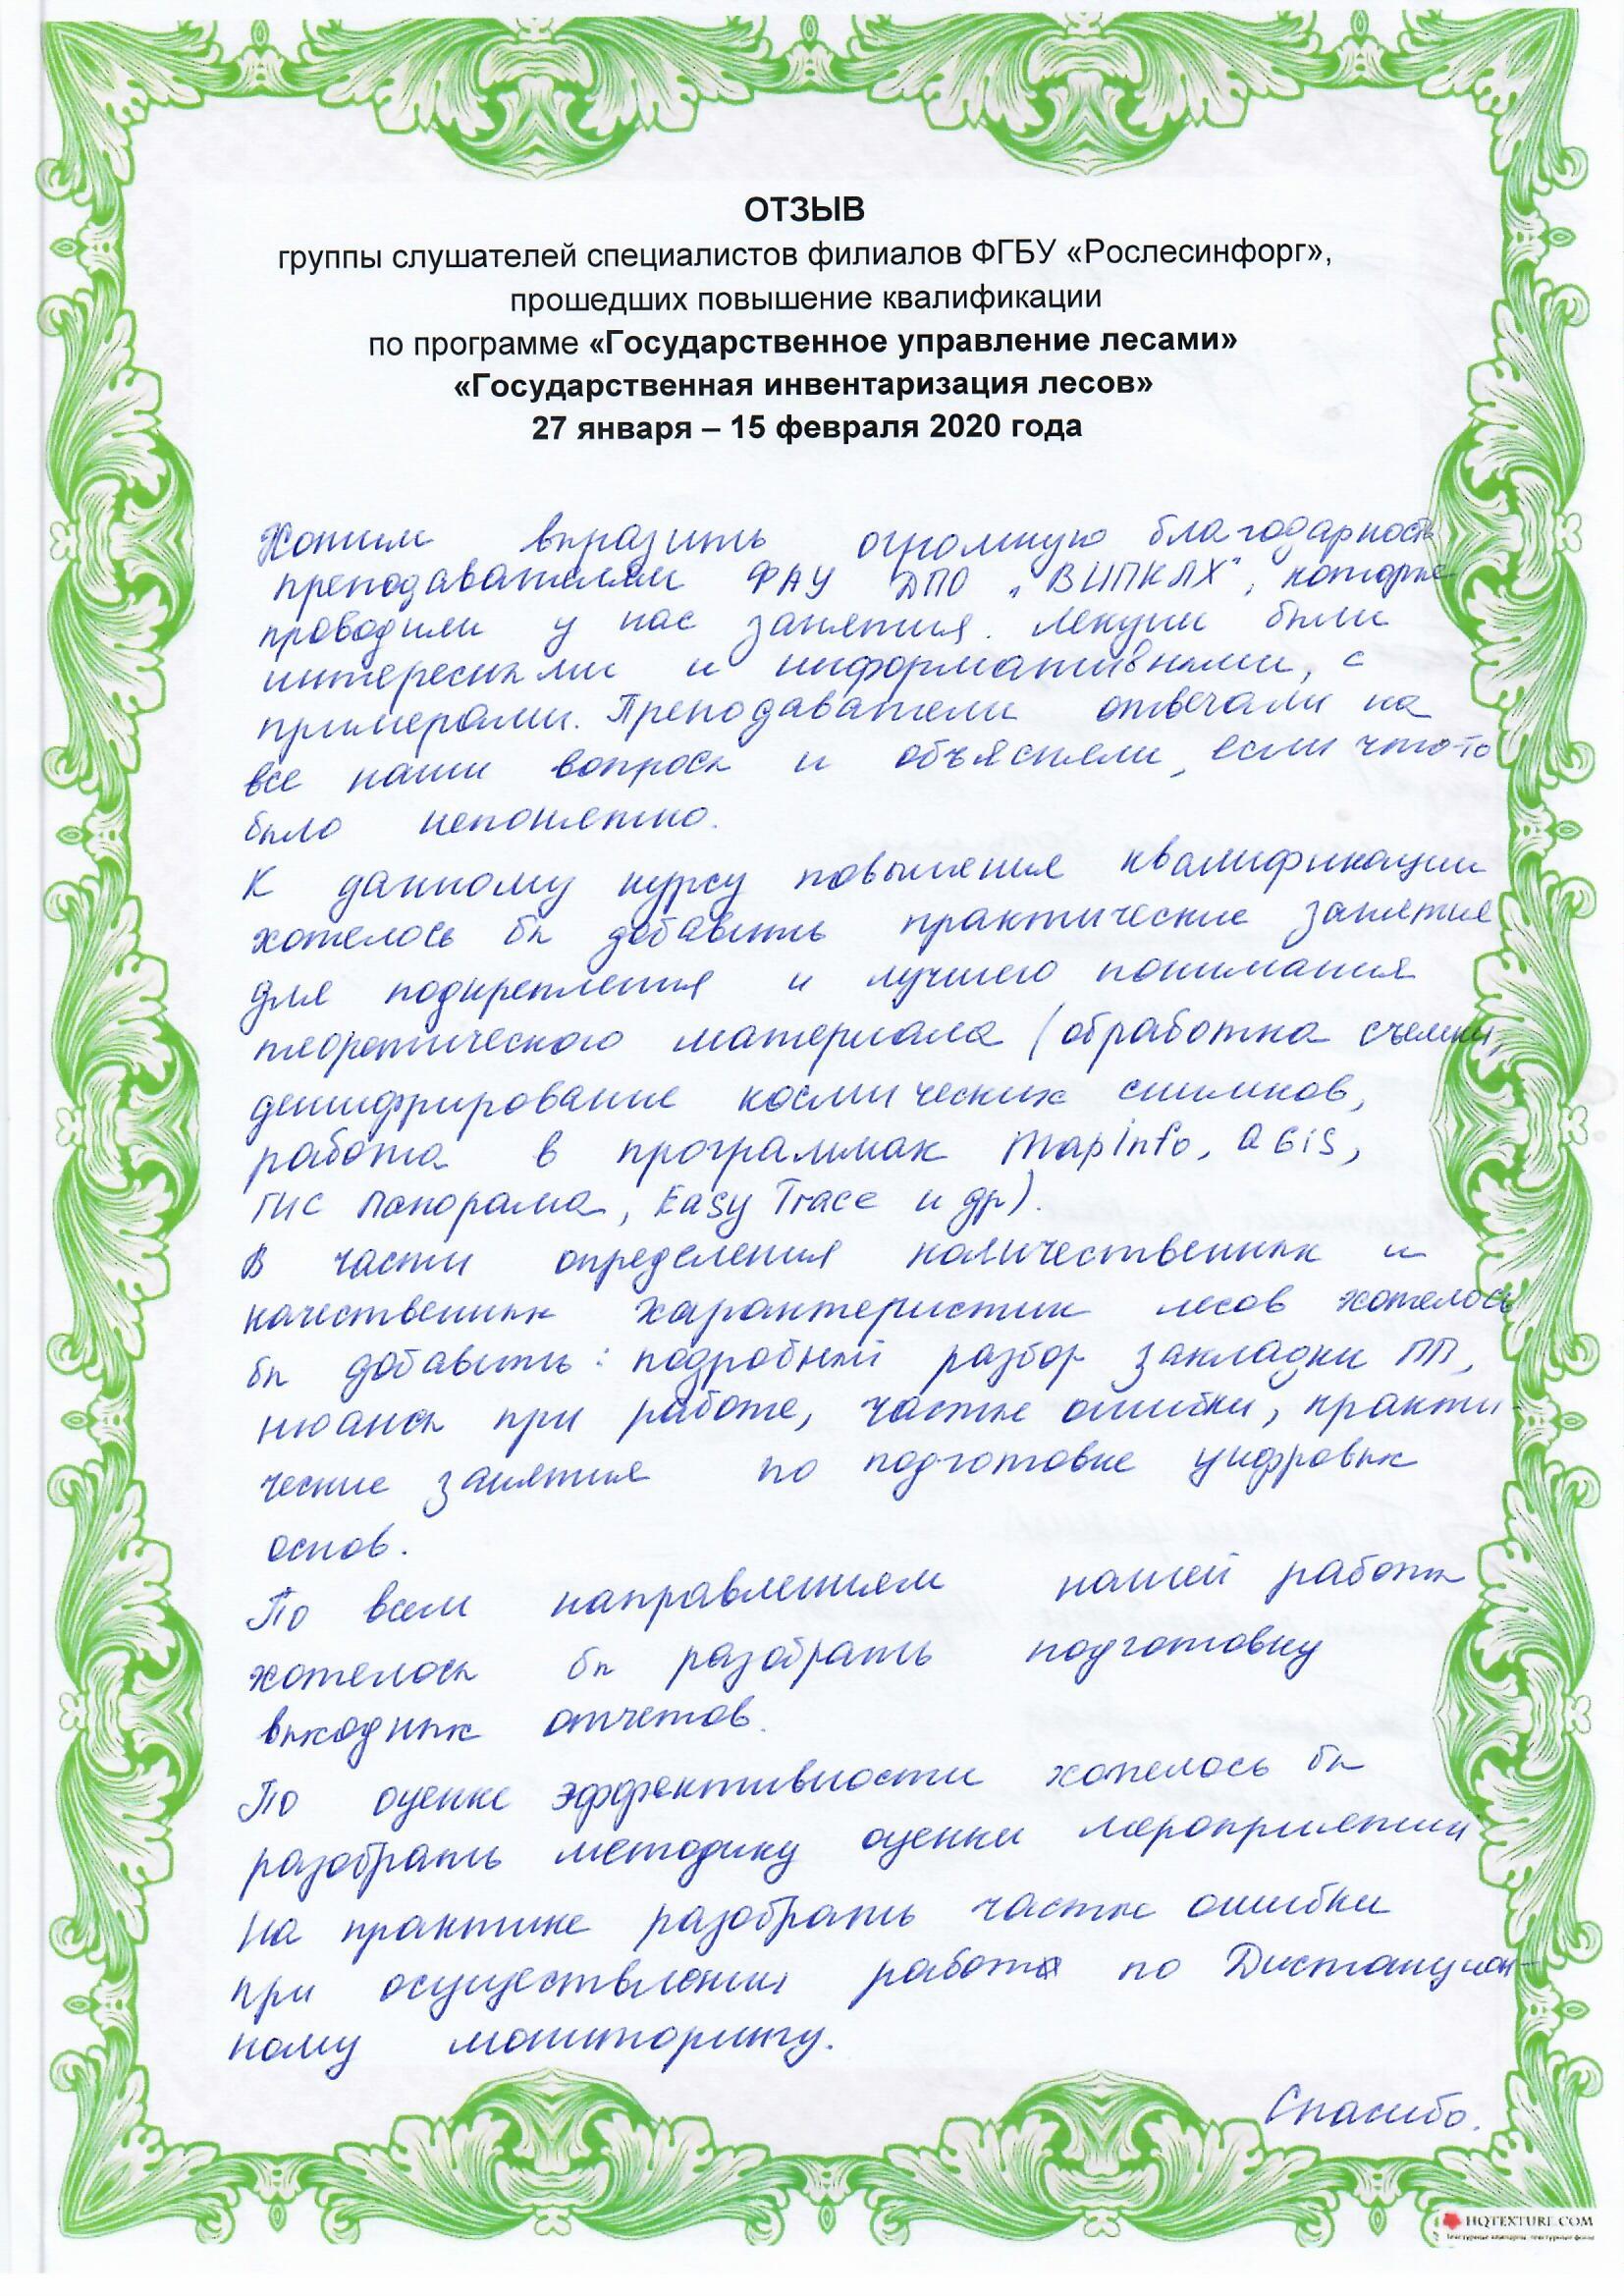 ОТЗЫВ
группы слушателей специалистов филиалов ФГБУ «Рослесинфорг»,
прошедших повышение квалификации
по программе «Государственное управление лесами»
«Государственная инвентаризация лесов»
27 января – 15 февраля 2020 года
Хотим выразить огромную благодарность
преподавателям ФАУ ДПО „ВИПКЛХ", которые
проводили у нас занятия. Лекции были
интересными и информативными, с
примерами. Преподаватели отвечали на
все наши вопросы и объясняли, если что-то
было непонятно.
К данному курсу повышения квалификации
хотелось бы добавить практические занятия
для подкрепления и лучшего понимания
теоретического материала (обработка съемки,
дешифрирование космических снимков,
работа в программах MapInfo, QGiS,
ГИС Панорама, Easy Trace и др).
В части определения количественных и
качественных характеристик лесов хотелось
бы добавить: подробный разбор закладки ПП,
нюансы при работе, частые ошибки, практи-
ческие занятия по подготовке цифровых
основ.
По всем направлениям нашей работы
хотелось бы разобрать подготовку
выходных отчетов.
По оценке эффективности хотелось бы
разобрать методику оценки мероприятий
На практике разобрать частые ошибки
при осуществлении работы по Дистанцион-
ному мониторингу.
Спасибо.
HQTEXTURE.COM